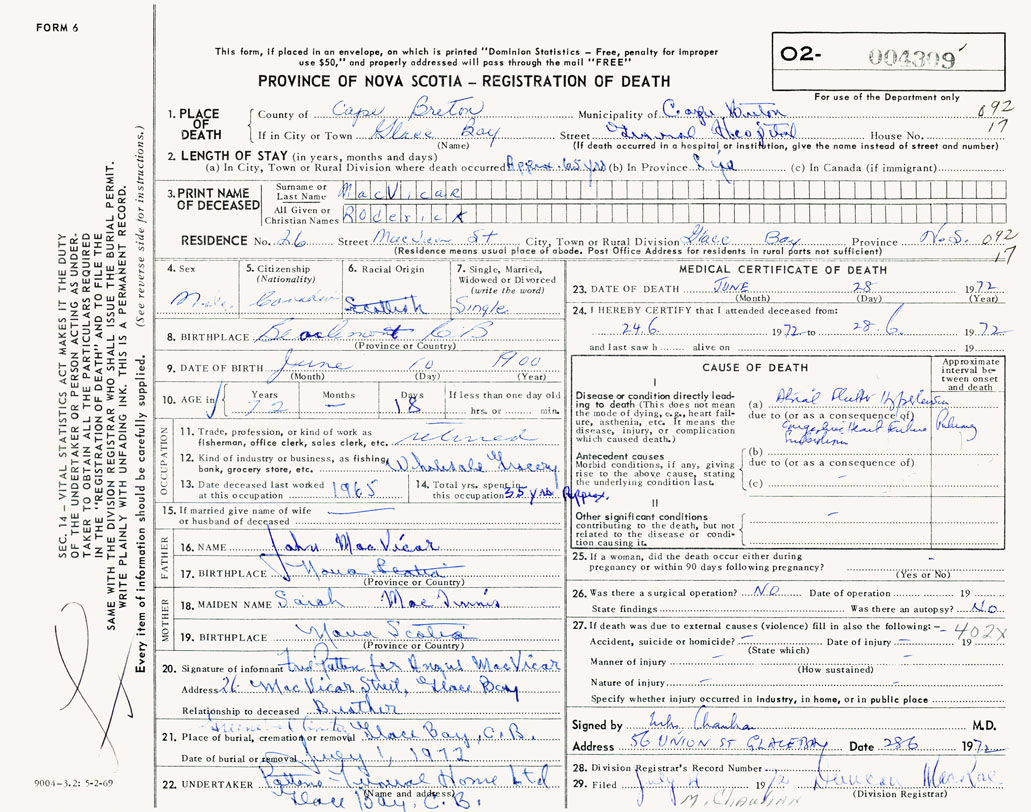 FORM 6
This form, if placed in an envelope, on which is printed "Dominion Statistics – Free, penalty for improper
use $50," and properly addressed will pass through the mail "FREE"
PROVINCE OF NOVA SCOTIA – REGISTRATION OF DEATH
O2- 004309
For use of the Department only
SEC. 14 – VITAL STATISTICS ACT MAKES IT THE DUTY
OF THE UNDERTAKER OR PERSON ACTING AS UNDER-
TAKER TO OBTAIN ALL THE PARTICULARS REQUIRED
IN THE "REGISTRATION OF DEATH" AND TO FILE THE
SAME WITH THE DIVISION REGISTRAR WHO SHALL ISSUE THE BURIAL PERMIT.
WRITE PLAINLY WITH UNFADING INK. THIS IS A PERMANENT RECORD.
Every item of information should be carefully supplied. (See reverse side for instructions.)
1. PLACE OF DEATH
County of Cape Breton Municipality of Cape Breton 092
If in City or Town Glace Bay Street General Hospital House No. 17
(Name) (If death occurred in a hospital or institution, give the name instead of street and number)
2. LENGTH OF STAY (in years, months and days)
(a) In City, Town or Rural Division where death occurred Approx. 65 yrs (b) In Province Life (c) In Canada (if immigrant)
3. PRINT NAME OF DECEASED
Surname or Last Name MacVicar
All Given or Christian Names Roderick
RESIDENCE No. 26 Street MacVicar St City, Town or Rural Division Glace Bay Province N.S. 092
(Residence means usual place of abode. Post Office Address for residents in rural parts not sufficient) 17
4. Sex Male
5. Citizenship (Nationality) Canadian
6. Racial Origin Scottish
7. Single, Married, Widowed or Divorced (write the word) Single
8. BIRTHPLACE Beachmont C.B.
(Province or Country)
9. DATE OF BIRTH June 10 1900
(Month) (Day) (Year)
10. AGE in Years 72 Months – Days 18 If less than one day old
hrs. or min.
OCCUPATION
11. Trade, profession or kind of work as
fisherman, office clerk, sales clerk, etc. retired
12. Kind of industry or business, as fishing,
bank, grocery store, etc. Wholesale Grocery
13. Date deceased last worked
at this occupation 1965
14. Total yrs. spent in
this occupation 35 yrs Approx.
15. If married give name of wife
or husband of deceased
FATHER
16. NAME John MacVicar
17. BIRTHPLACE Nova Scotia
(Province or Country)
MOTHER
18. MAIDEN NAME Sarah MacInnis
19. BIRTHPLACE Nova Scotia
(Province or Country)
20. Signature of informant Patten for Angus MacVicar
Address 26 MacVicar Street, Glace Bay
Relationship to deceased Brother
21. Place of burial, cremation or removal Glace Bay, C.B.
Date of burial or removal July 1, 1972
22. UNDERTAKER Pattens Funeral Home Ltd
(Name and address)
Glace Bay, C.B.
9004-3.2: 5-2-69
MEDICAL CERTIFICATE OF DEATH
23. DATE OF DEATH JUNE 28 1972
(Month) (Day) (Year)
24. I HEREBY CERTIFY that I attended deceased from:
24.6 1972 to 28.6. 1972
and last saw h alive on 19
CAUSE OF DEATH
Approximate interval between onset and death
I
Disease or condition directly lead-
ing to death (This does not mean
the mode of dying, e.g., heart fail-
ure, asthenia, etc. It means the
disease, injury, or complication
which caused death.)
(a) Atrial Flutter Hypertension
due to (or as a consequence of)
Congestive Heart Failure
Embolism
Antecedent causes
Morbid conditions, if any, giving
rise to the above cause, stating
the underlying condition last.
(b)
due to (or as a consequence of)
(c) –
II
Other significant conditions
contributing to the death, but not
related to the disease or condi-
tion causing it. –
25. If a woman, did the death occur either during
pregnancy or within 90 days following pregnancy? –
(Yes or No)
26. Was there a surgical operation? NO Date of operation 19
State findings Was there an autopsy? No
27. If death was due to external causes (violence) fill in also the following: – 402X
Accident, suicide or homicide? – Date of injury – 19
(State which)
Manner of injury –
(How sustained)
Nature of injury – –
Specify whether injury occurred in industry, in home, or in public place
Signed by Chauhan M.D.
Address 56 UNION ST GLACE BAY Date 28 6 1972
28. Division Registrar's Record Number
29. Filed July 4 1972 Duncan MacRae
(Division Registrar)
M. Chauhan